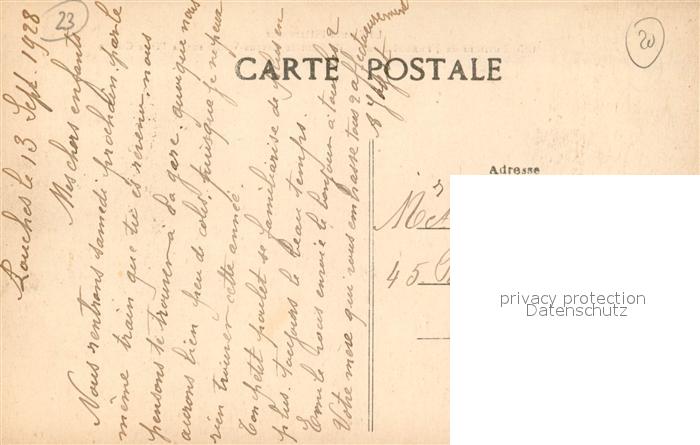 23
20
CARTE POSTALE
Adresse
45
privacy protection
Datenschutz
Louches le 13 Sept. 1928
Mes chers enfants
Nous rentrons samedi prochain par le
même train que tu es revenu, nous
pensons te trouver à la gare quoique nous
aurons bien peu de colis, puisque je ne peux
rien trouver cette année.
Ton petit poulet se familiarise de plus en
plus. Toujours le beau temps.
Emile nous envoie le bonjour à tous les 2
Votre mère qui vous embrasse tous 2 affectueusement